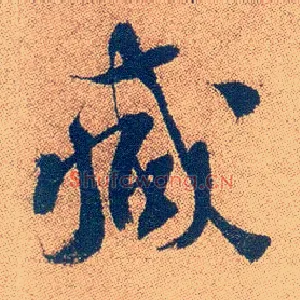 臧
Shufawang.CN